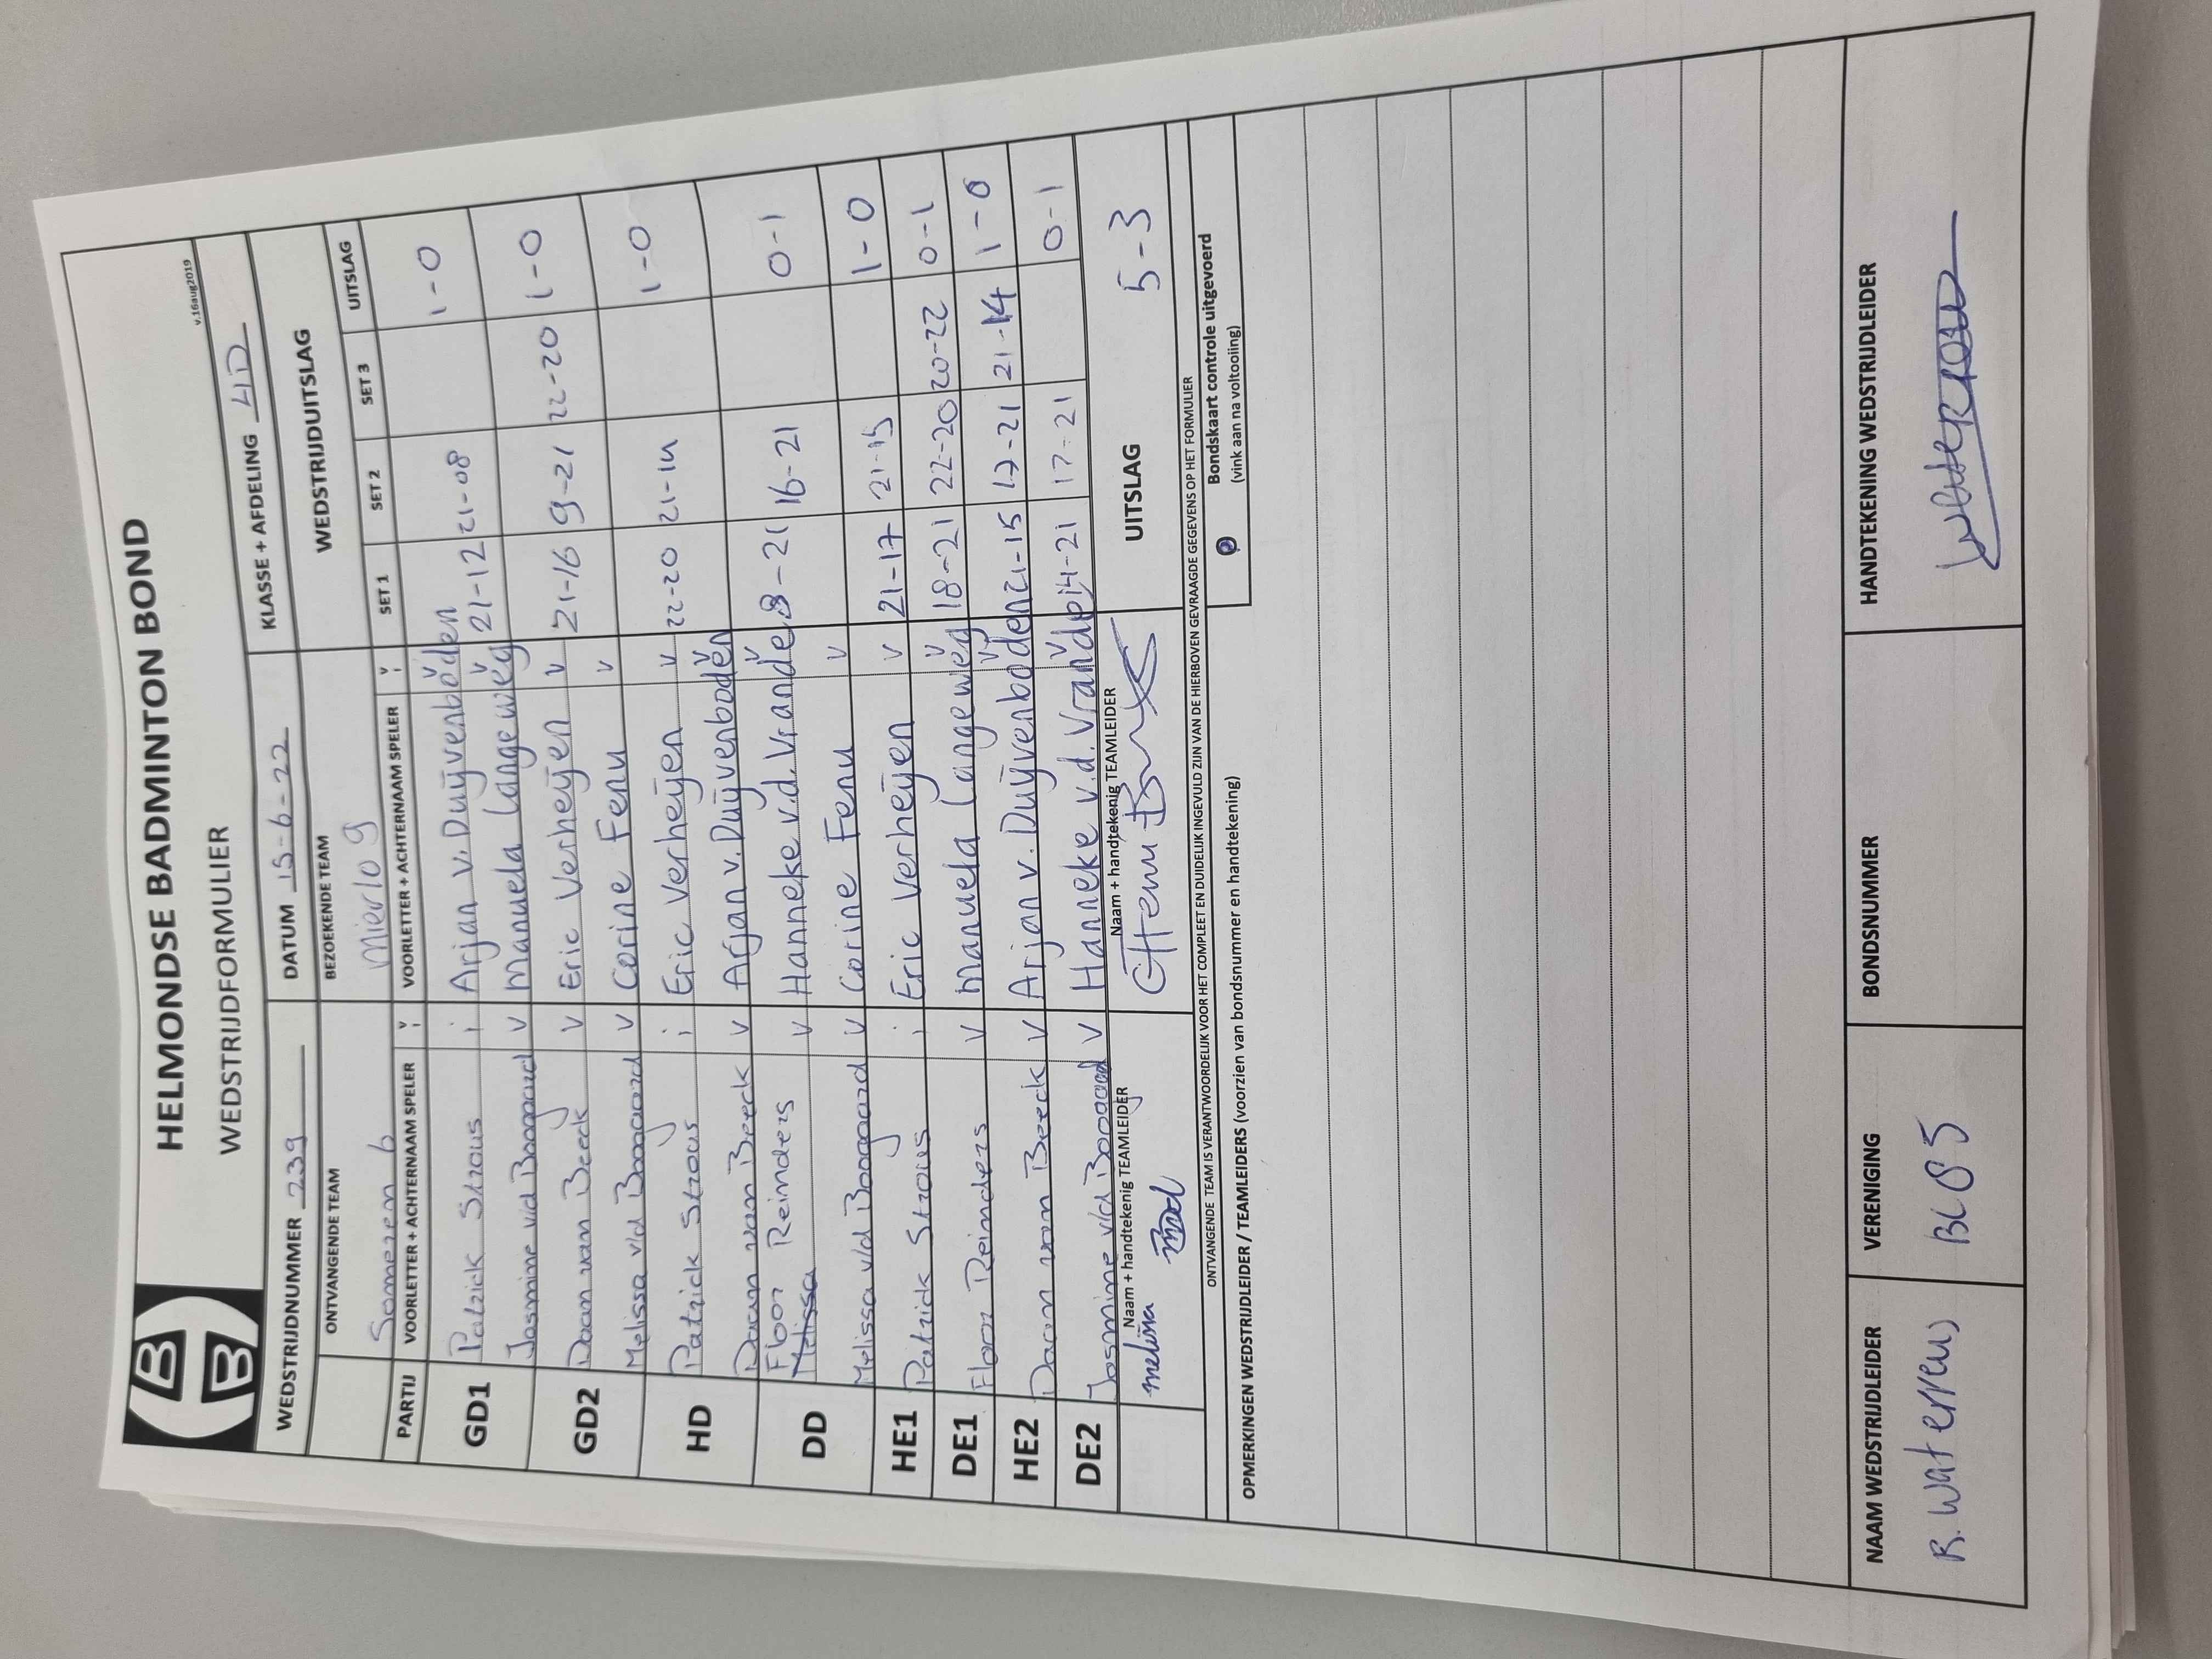 HELMONDSE BADMINTON BOND
WEDSTRIJDFORMULIER
v.16aug2019
WEDSTRIJDNUMMER 239 DATUM 15-6-22 KLASSE + AFDELING 4D
ONTVANGENDE TEAM BEZOEKENDE TEAM WEDSTRIJDUITSLAG
Someren 6 Mierlo 9
PARTIJ VOORLETTER + ACHTERNAAM SPELER VOORLETTER + ACHTERNAAM SPELER SET 1 SET 2 SET 3 UITSLAG
GD1 Patrick Straus i Arjan v. Duijvenboden v 21-12 21-08 1-0
Jasmine v/d Boogaard v Manuela Langeweg v
GD2 Daan van Beeck v Eric Verheijen v 21-16 9-21 22-20 1-0
Melissa v/d Boogaard v Corine Fenu v
HD Patrick Straus i Eric Verheijen v 22-20 21-14 1-0
Daan van Beeck v Arjan v. Duijvenboden v
DD Floor Reinders v Hanneke v.d. Vrande v 8-21 16-21 0-1
Melissa
Melissa v/d Boogaard v Corine Fenu v
HE1 Patrick Straus i Eric Verheijen v 21-17 21-15 1-0
DE1 Floor Reinders v Manuela Langeweg v 18-21 22-20 20-22 0-1
HE2 Daan van Beeck v Arjan v. Duijvenboden v 21-15 17-21 21-14 1-0
DE2 Jasmine v/d Boogaard v Hanneke v.d. Vrande v 14-21 17-21 0-1
Naam + handtekenig TEAMLEIDER Naam + handtekenig TEAMLEIDER UITSLAG 5-3
ONTVANGENDE TEAM IS VERANTWOORDELIJK VOOR HET COMPLEET EN DUIDELIJK INGEVULD ZIJN VAN DE HIERBOVEN GEVRAAGDE GEGEVENS OP HET FORMULIER
Bondskaart controle uitgevoerd
(vink aan na voltooiing)
OPMERKINGEN WEDSTRIJDLEIDER / TEAMLEIDERS (voorzien van bondsnummer en handtekening)
NAAM WEDSTRIJDLEIDER VERENIGING BONDSNUMMER HANDTEKENING WEDSTRIJDLEIDER
R. Waterreus BC85